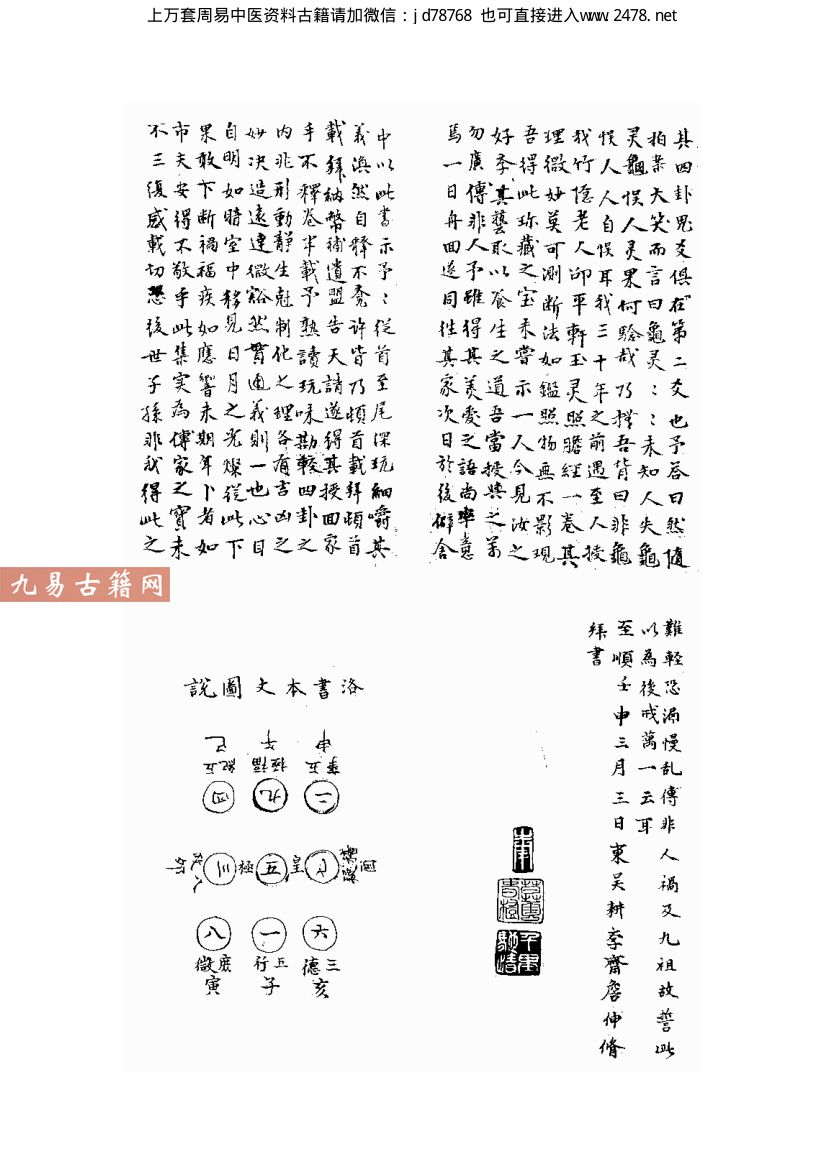 上万套周易中医资料古籍请加微信：jd78768 也可直接进入www.2478.net
其四卦鬼爻俱在第二爻也予荅曰然随
拍案大笑而言曰龜灵〻〻未知人失龜
灵龜悮人灵果何驗哉乃釋吾背曰非龜
悮人人自悮耳我三十年之前遇至人授
我竹隐老人邵平軒玉灵照膽經一卷其
理微妙莫可測断法如鑑照物無不影現
吾得此珎藏之宝未嘗示一人今見汝之
好李其藝取以养生之道吾當授與之第
勿廣傳非人予雖得其美愛之語尚率意
焉一日舟回遂同徃其家次日於後僻舍
中以此書示予〻從首至尾深玩細嚼其
義渙然自釋不覔許皆乃頓首載拜頓首
載拜納幣補遺盟告天請遂得其授回家
手不釋卷半載予熟讀玩味勘較四卦之
内非形動靜生尅制化之理各有吉凶之
妙决造遠達微豁然貫通義則一也心目
自明如暗室中移見日月之光燦從此下
果敢下断禍福疾如應響未期年卜者如
市夫安得不敬手此集実為傳家之寶未
不三復感載切恐後世子孫非我得此之
九易古籍网
難軽恐漏慢乱傳非人禍及九祖故誓此
以為後戒萬一云耳
至順壬申三月三日東吴耕李齋詹仲脩
拜書
洛書本文圖說
申 午 巳
五事 福極 五紀
二 九 四
皇 五 極 三
六 一 八
三德 五行 庶徵
亥 子 寅